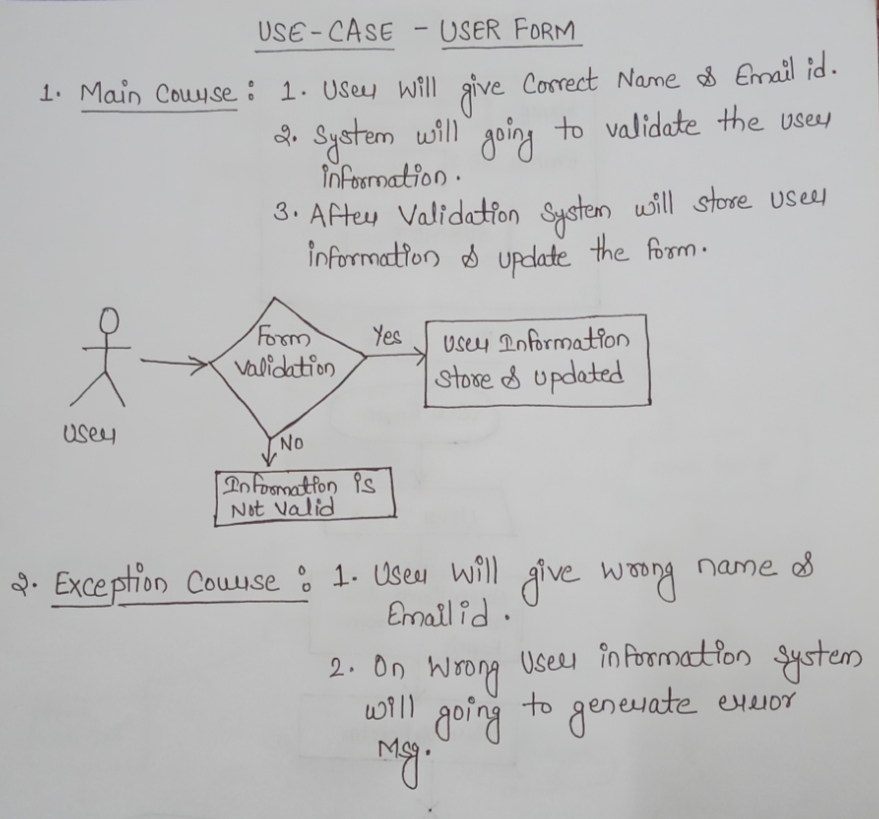 USE-CASE - USER FORM
1. Main Course : 1. User will give Correct Name & Email id.
2. System will going to validate the user
information.
3. After Validation System will store user
information & update the form.
Form
Validation
Yes
User Information
Store & Updated
User
No
Information is
Not Valid
2. Exception Course : 1. User will give wrong name &
Email id.
2. On Wrong User information System
will going to generate error
Msg.